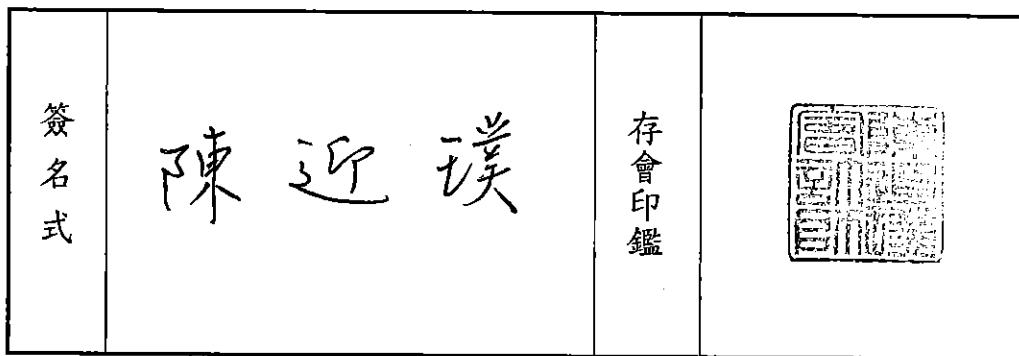 簽名式
陳近璞
存會印鑑